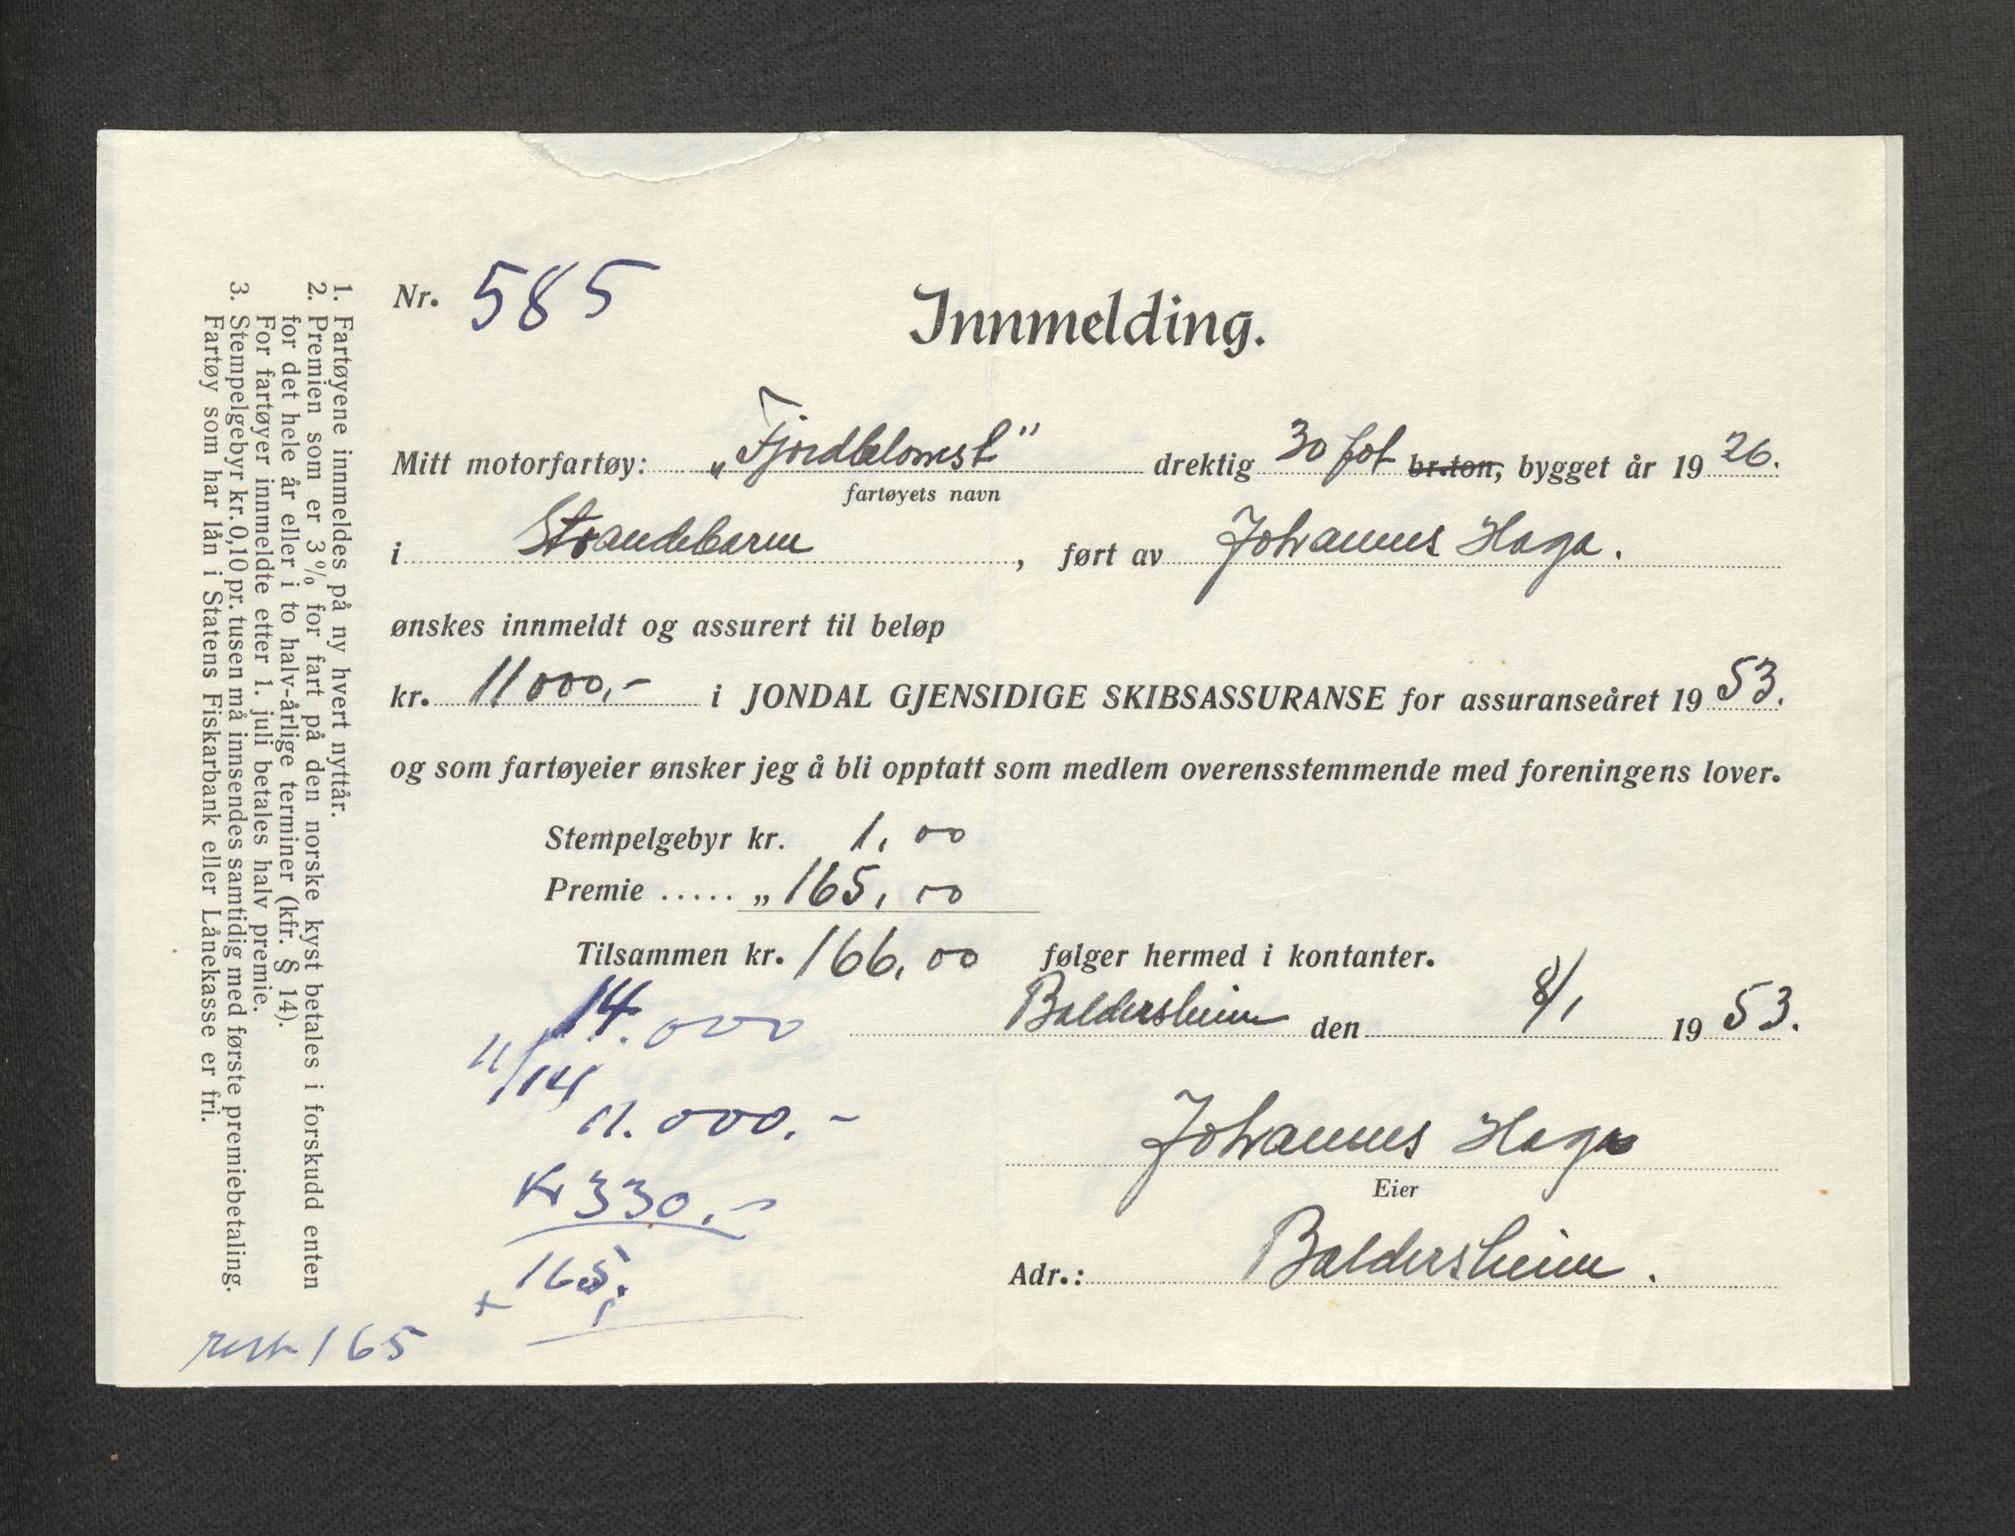 Nr. 585
Innmelding.
Mitt motorfartøy: „Fjordblomst“ drektig 30 fot br.ton, bygget år 1926.
fartøyets navn
i Strandebarm, ført av Johannes Haga.
ønskes innmeldt og assurert til beløp
kr. 11000,- i JONDAL GJENSIDIGE SKIBSASSURANSE for assuranseåret 1953.
og som fartøyeier ønsker jeg å bli opptatt som medlem overensstemmende med foreningens lover.
Stempelgebyr kr. 1,00
Premie ..... „ 165,00
Tilsammen kr. 166,00 følger hermed i kontanter.
Baldersheim den 8/1 1953.
Johannes Haga
Eier
Adr.: Baldersheim.
14.000
11/14
11.000.-
Kr 330.-
165.
rest 165
1. Fartøyene innmeldes på ny hvert nyttår.
2. Premien som er 3% for fart på den norske kyst betales i forskudd enten
for det hele år eller i to halv-årlige terminer (kfr. § 14).
For fartøyer innmeldte etter 1. juli betales halv premie.
3. Stempelgebyr kr. 0,10 pr. tusen må innsendes samtidig med første premiebetaling.
Fartøy som har lån i Statens Fiskarbank eller Lånekasse er fri.